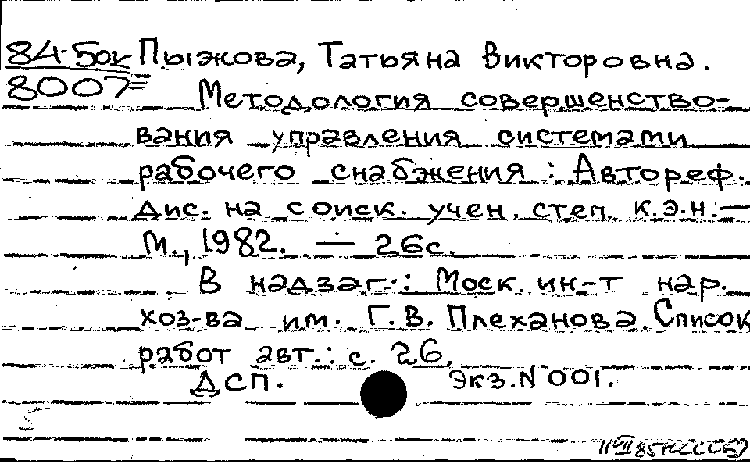 84-5ок Пыжова, Татьяна Викторовна.
8007= Методология совершенство-
вания управления системами
рабочего снабжения : Автореф.
дис. на соиск. учен. степ. к.э.н.—
М., 1982. — 26с.
В надзаг.: Моск. ин-т нар.
хоз-ва им. Г.В. Плеханова. Список
работ авт.: с. 26.
ДСП. Экз.N 001.